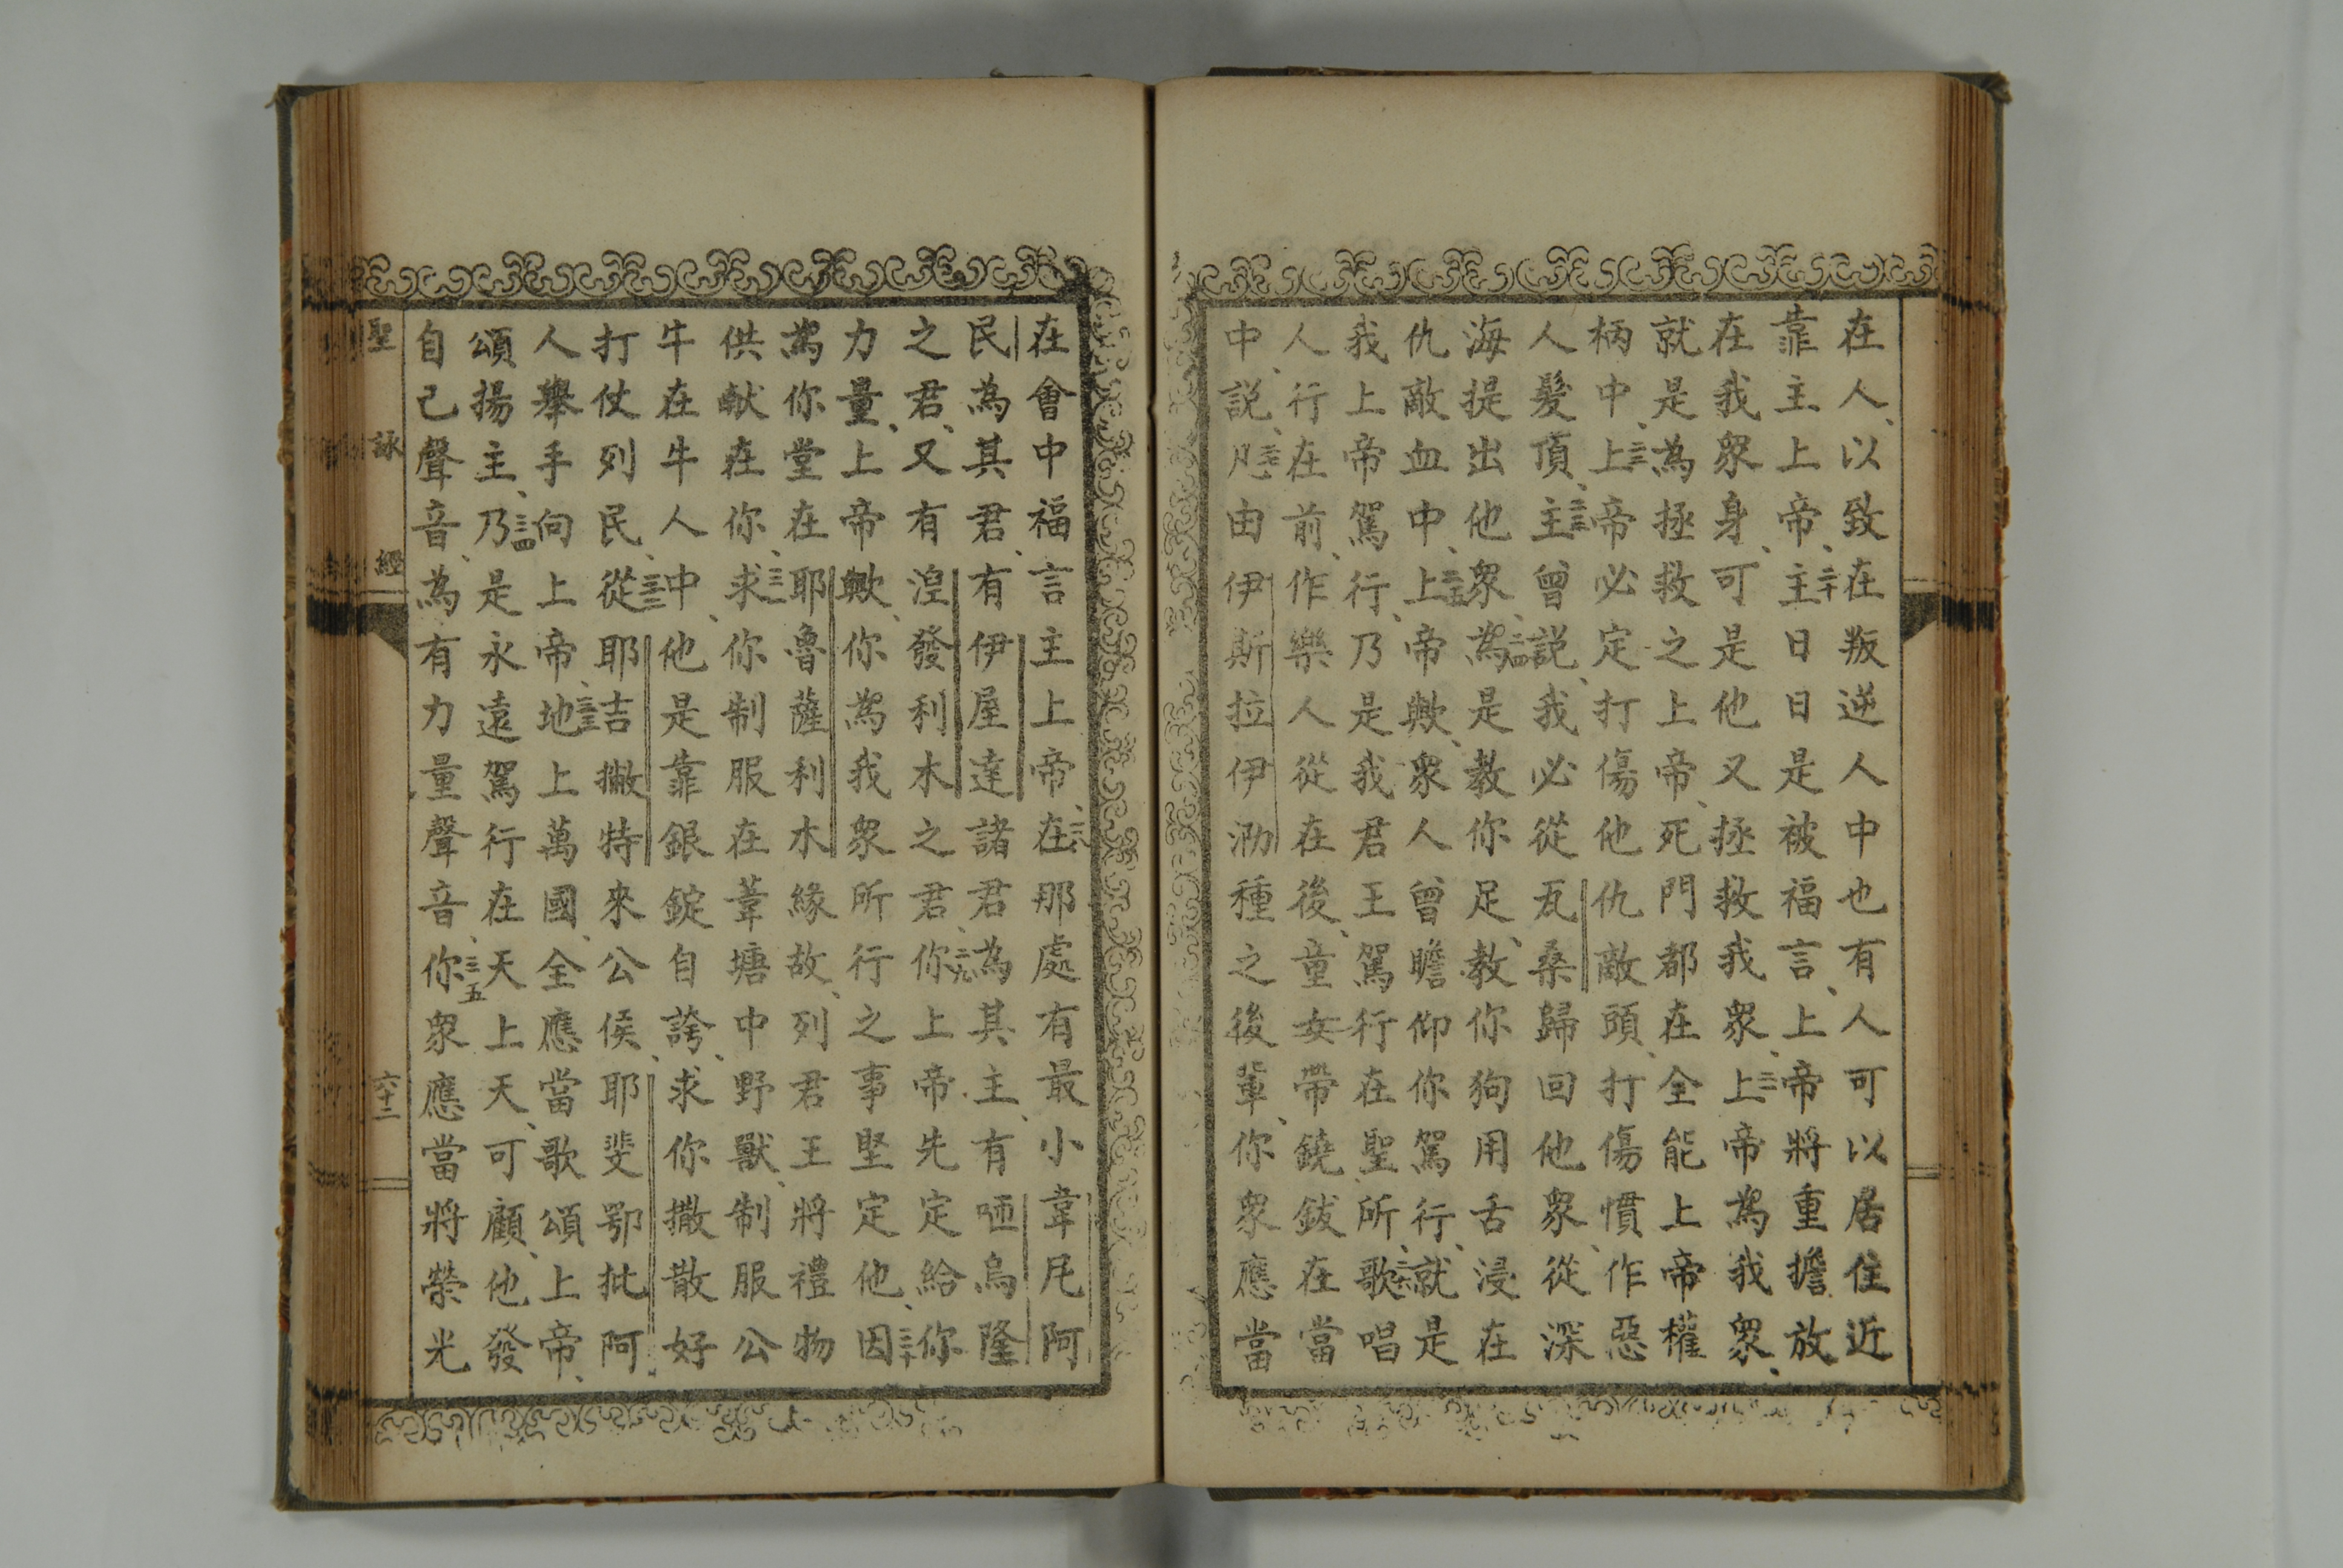 在人、以致在叛逆人中也有人可以居住近
靠主上帝、二十主日日是被福言、上帝將重擔放
在我衆身、可是他又拯救我衆、二一上帝為我衆、
就是為拯救之上帝、死門都在全能上帝權
柄中、二二上帝必定打傷他仇敵頭、打傷慣作惡
人髮頂、二三主曾説、我必從瓦桑歸回他衆、從深
海提出他衆、二四為是教你足、教你狗用舌浸在
仇敵血中、二五上帝歟、衆人曾瞻仰你駕行、就是
我上帝駕行、乃是我君王駕行在聖所、二六歌唱
人行在前、作樂人從在後、童女帶鐃鈸在當
中、説、二七凡由伊斯拉伊泐種之後輩、你衆應當
在會中福言主上帝、二八在那處有最小韋尼阿
民為其君、有伊屋達諸君為其主、有咂烏隆
之君、又有湼發利木之君、二九你上帝、先定給你
力量、上帝歟、你為我衆所行之事堅定他、三十因
為你堂在耶魯薩利木緣故、列君王將禮物
供献在你、三一求你制服在葦塘中野獸、制服公
牛在牛人中、他是靠銀錠自誇、求你撒散好
打仗列民、三二從耶吉撇特來公侯、耶斐鄂批阿
人舉手向上帝、三三地上萬國、全應當歌頌上帝、
頌揚主、三四乃是永遠駕行在天上天、可顧、他發
自己聲音、為有力量聲音、三五你衆應當將榮光
聖詠經
六十二